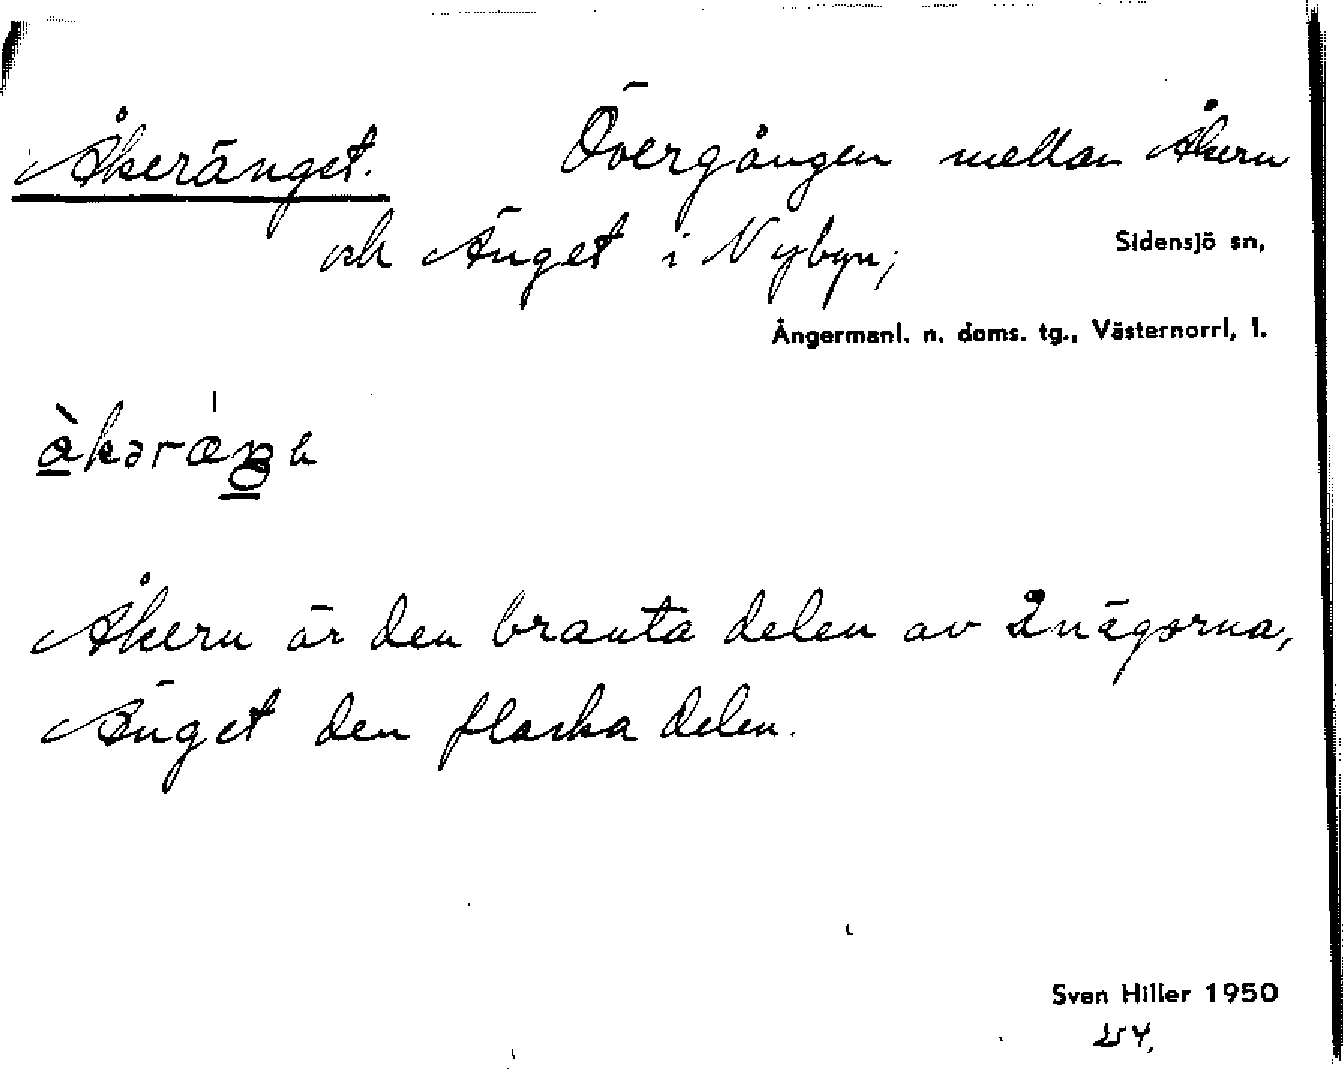 Åkeränget. Övergången mellan Åkern
och Änget i Nybyn;
Sidensjö sn,
Ångermanl. n. doms. tg., Västernorrl. l.
Åkern är den branta delen av
Änget den flacka delen.
Sven Hiller 1950